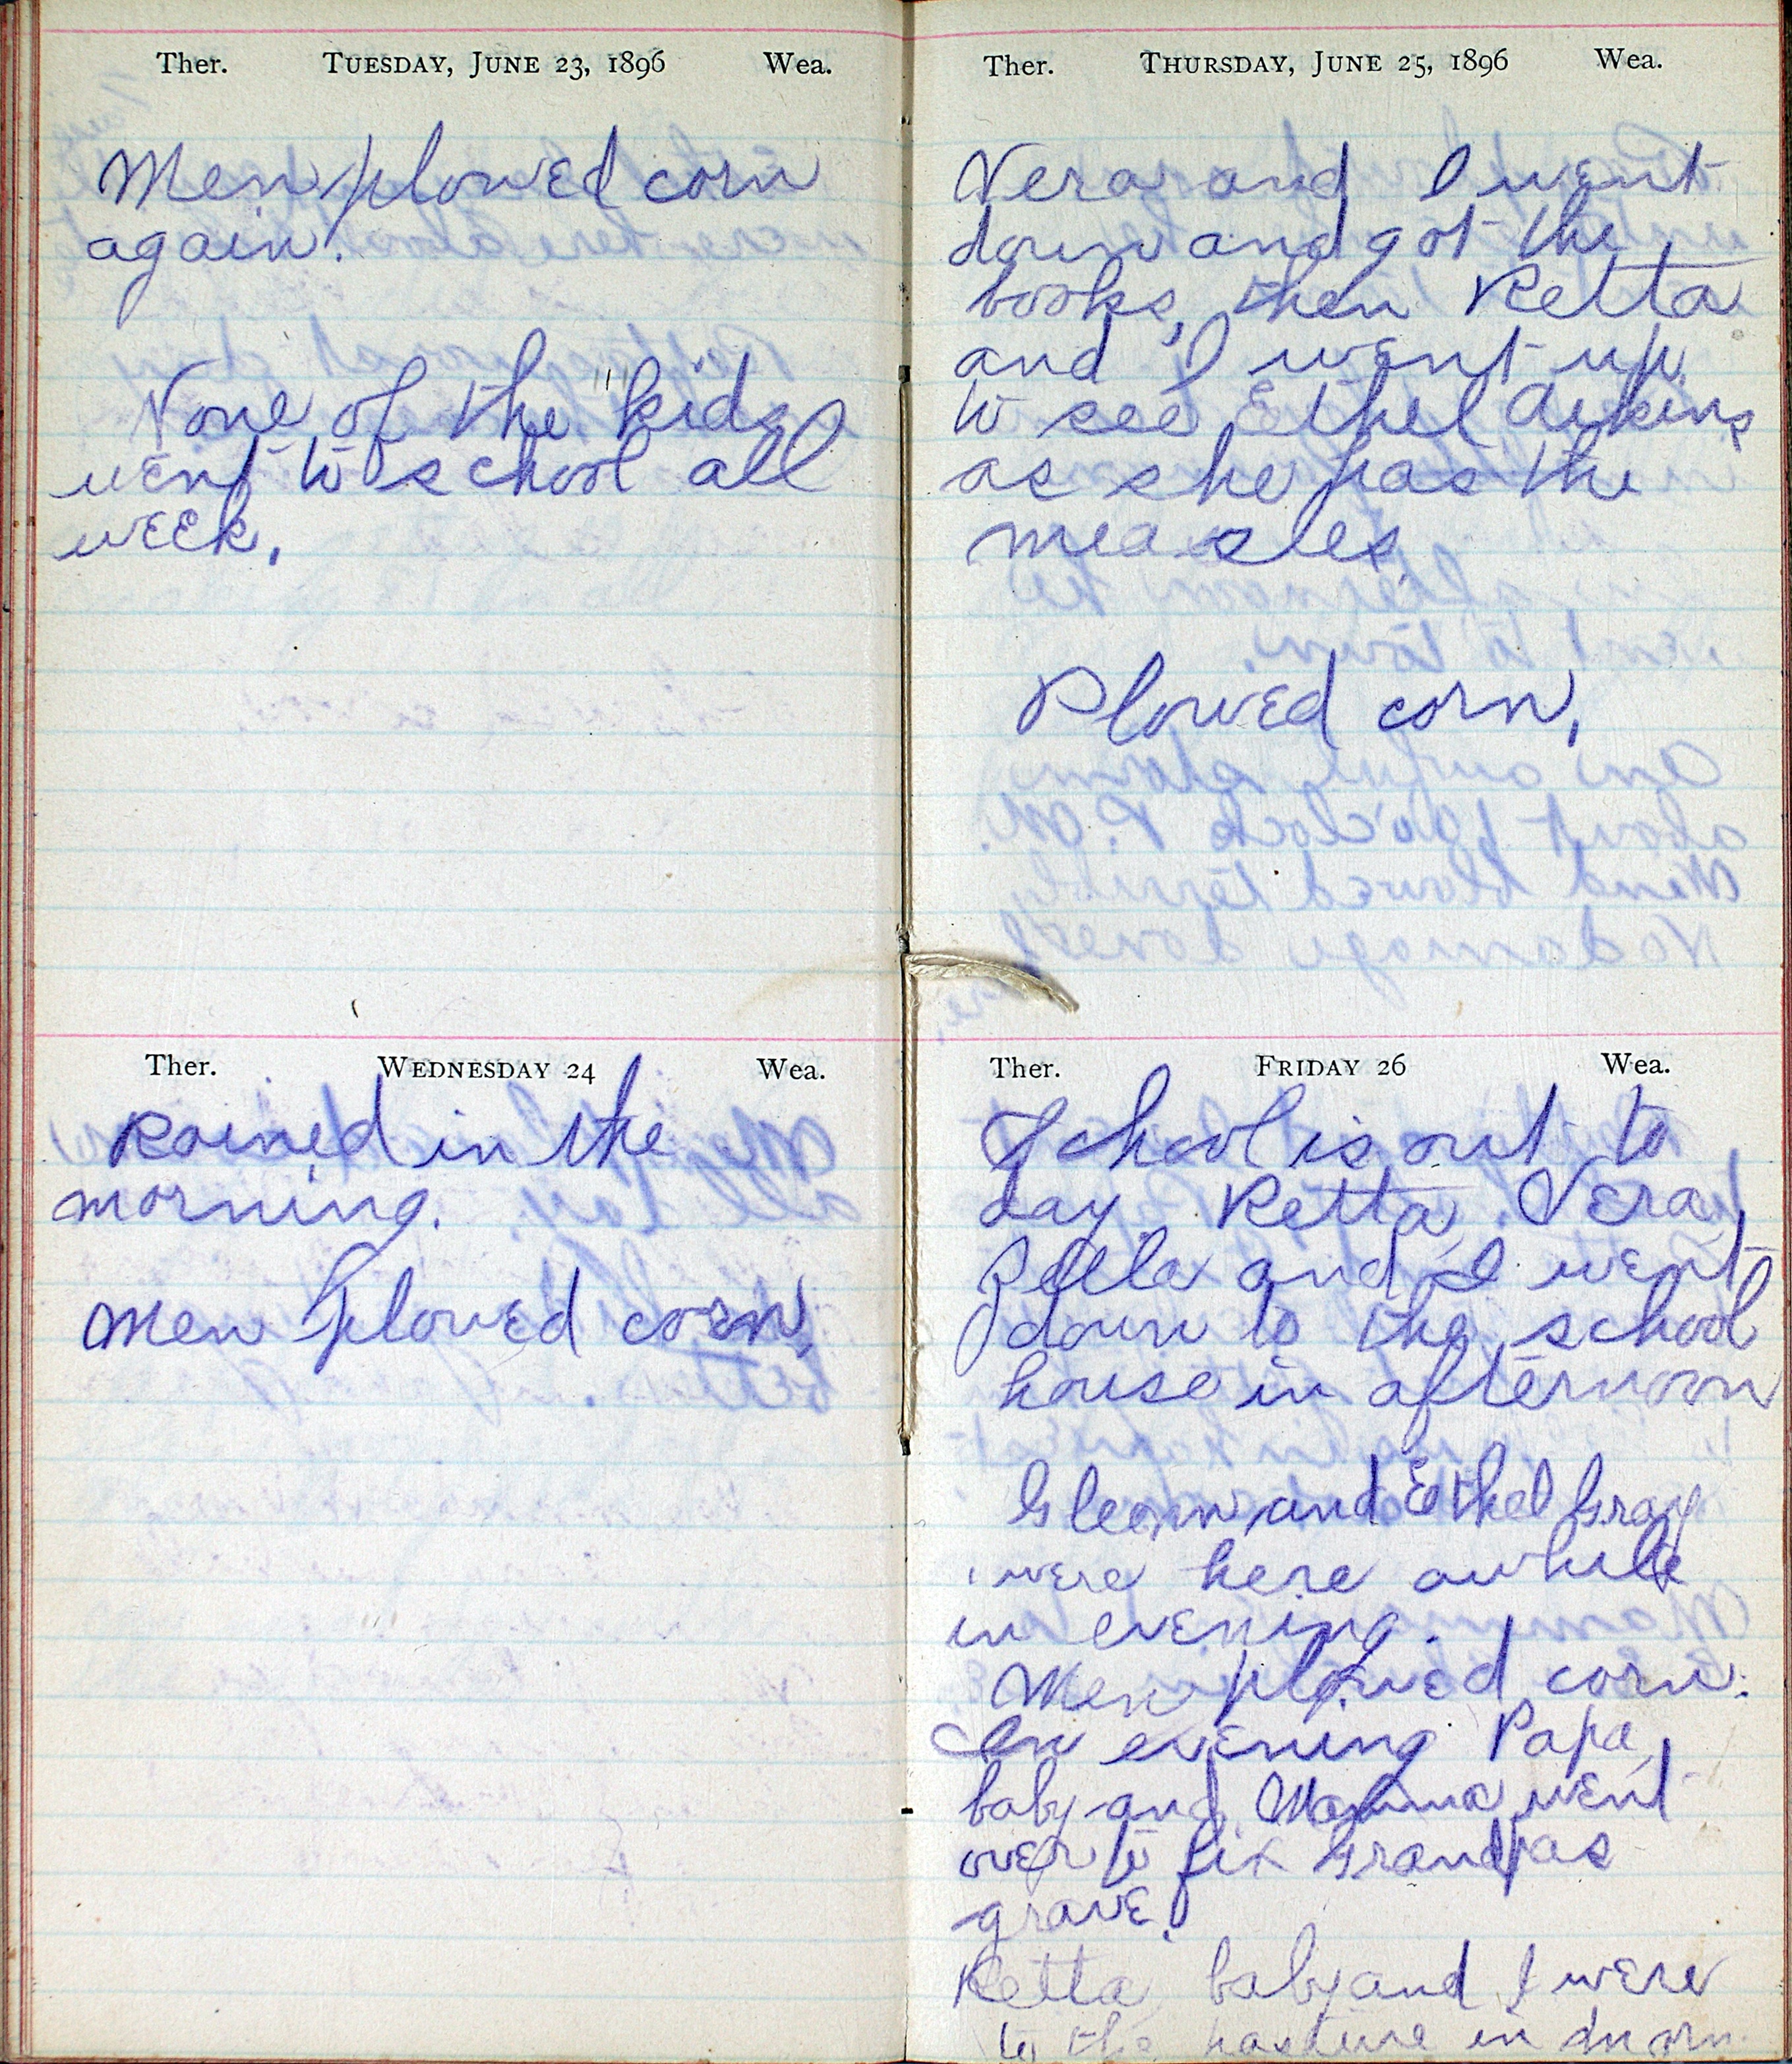 Ther. TUESDAY, JUNE 23, 1896 Wea.
Men plowed corn
again.
None of the "kids
went to school all
week.
Ther. WEDNESDAY 24 Wea.
Rained in the
morning.
Men plowed corn,
Ther. THURSDAY, JUNE 25, 1896 Wea.
Vera and I went
down and got the
books, then Retta
and I went up
to see Ethel Aikins
as she has the
measles.
Plowed corn,
Ther. FRIDAY 26 Wea.
School is out to
day Retta, Vera,
Zella and I went
down to the school
house in afternoon
Glenn and Ethel Gray
were here awhile
in evening.
Men plowed corn.
In evening Papa,
baby and Mamma went
over to fix Grandpas
grave.
Retta, baby and I were
to the pasture in morn.